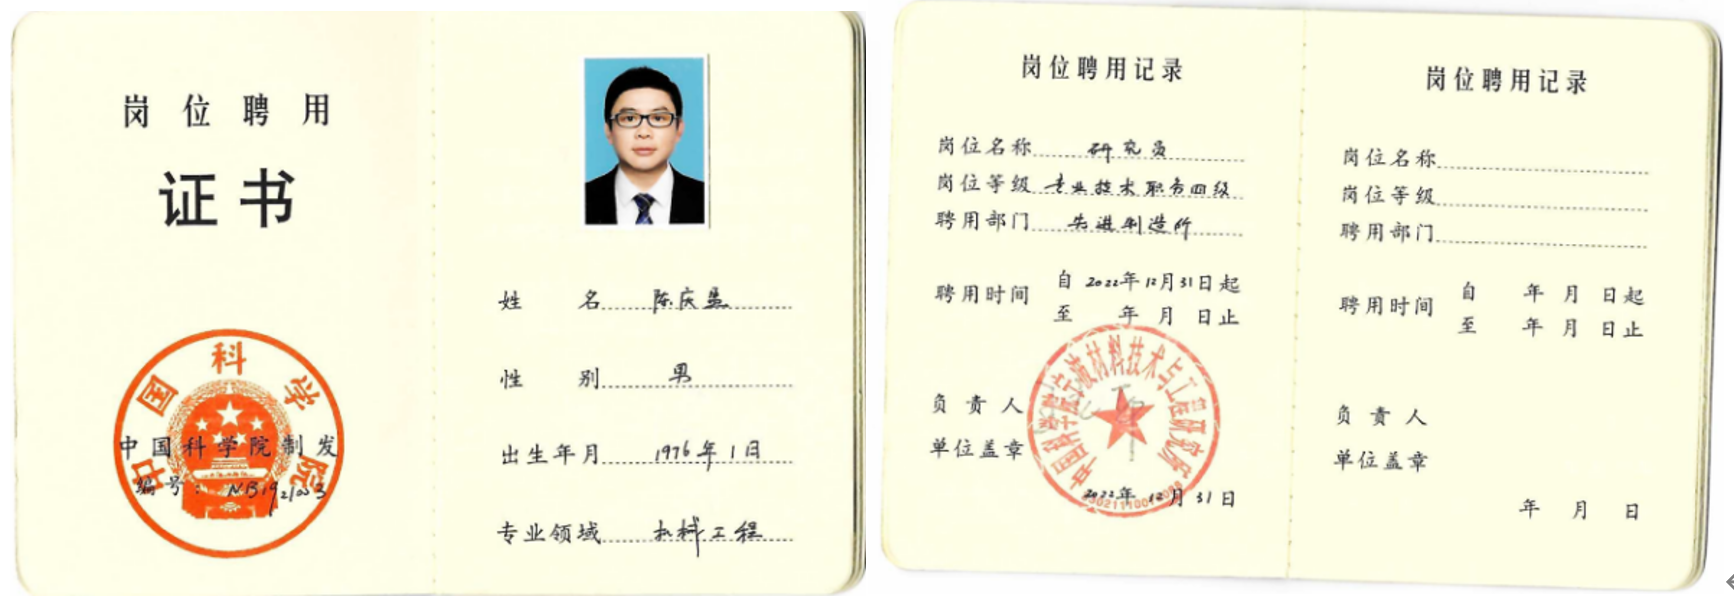 岗位聘用
证书
中国科学院
中国科学院制发
编号：NB192/003
姓名 陈庆盈
性别 男
出生年月 1976年1日
专业领域 机械工程
岗位聘用记录
岗位名称 研究员
岗位等级 专业技术职务四级
聘用部门 先进制造所
聘用时间 自2022年12月31日起
至 年 月 日止
负责人
单位盖章
中国科学院宁波材料技术与工程研究所
2022年12月31日
岗位聘用记录
岗位名称
岗位等级
聘用部门
聘用时间 自 年 月 日起
至 年 月 日止
负责人
单位盖章
年 月 日